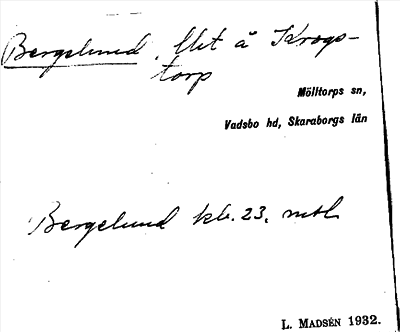 Bergelund, llet å Krogs-
torp
Mölltorps sn,
Vadsbo hd, Skaraborgs län
Bergelund kb. 23. mtl
L. MADSÉN 1932.